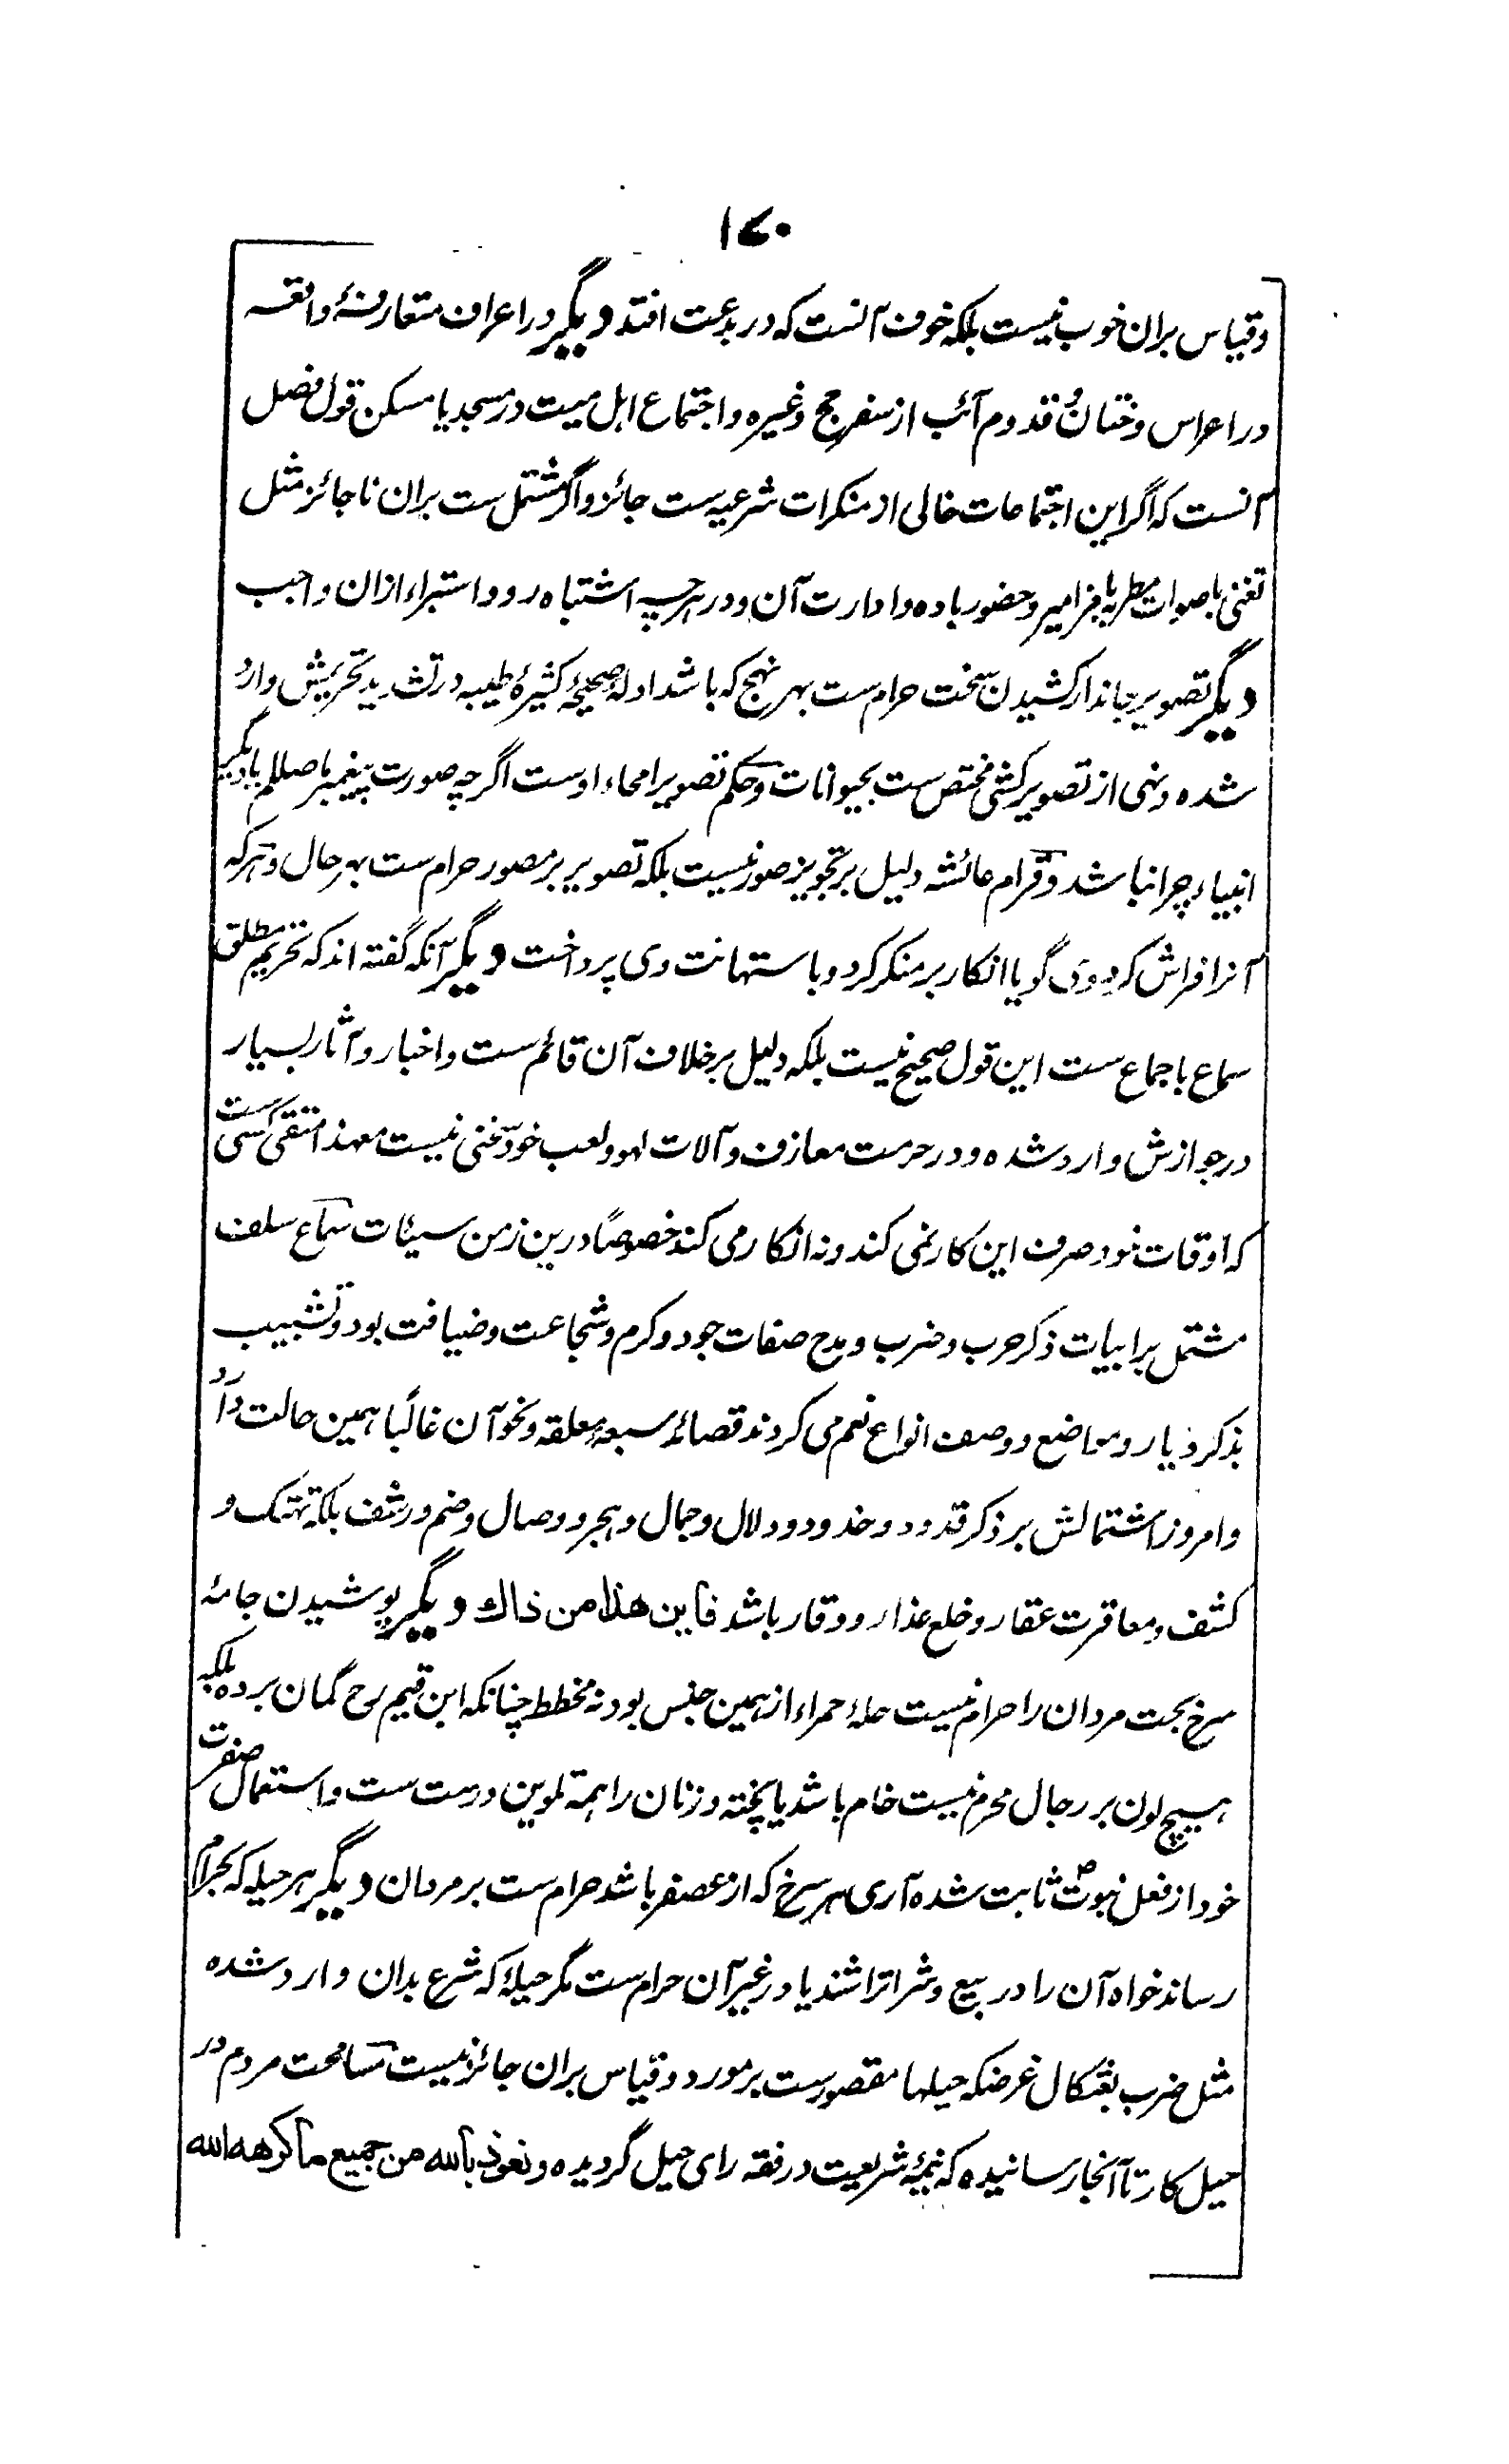 ۱۷۰
وقیاس بران خوب نیست بلکه خوف آنست که در بدعت افتد دیگر در اعراف متعارفهٔ واقعه
در اعراس وختان و قدوم آئب از سفر حج وغیره واجتماع اہل میت در مسجد یا مسکن قول فصل
آنست که اگر این اجتماعات خالی از منکرات شرعیه ست جائز واگر مشتمل ست بران ناجائز مثل
تغنی باصوات مطربه یا مزامیر وحضور باده وادارت آن ودر ہرچہ اشتباه رود استبراء ازان واجب
دیگر تصویر جاندار کشیدن سخت حرام ست بہر نہج که باشد ادلهٔ صحیحهٔ کثیرهٔ طیبه در تشدید تحریمش وارد
شده ونہی از تصویرکشی مختص ست بحیوانات وحکم تصویر امحاء اوست اگرچه صورت پیغمبر ما صللم یا دیگر
انبیاء چرا نباشد وقرام عائشه دلیل بر تجویز صور نیست بلکه تصویر بر مصور حرام ست بہر حال وہرکه
آنرا فراش کرد وی گویا انکار بر منکر کرد وباستہانت وی پرداخت دیگر آنکه گفته اند که تحریم مطلق
سماع باجماع ست این قول صحیح نیست بلکه دلیل برخلاف آن قائم ست واخبار وآثار بسیار
در جوازش وارد شده ودر حرمت معازف وآلات لہو ولعب خود سخنی نیست معہذا متقی کسی ست
که اوقات خود صرف این کار نمی کند ونه انکار می کند خصوصاً درین زمن سیئات سماع سلف
مشتمل بر ابیات ذکر حرب وضرب ومدح صفات جود وکرم وشجاعت وضیافت بود وتشبیب
بذکر دیار ومواضع ووصف انواع نعم می کردند قصائد سبعهٔ معلقه ونحو آن غالباً ہمین حالت دارد
وامروز اشتمالش بر ذکر قدود وخدود ودلال وجمال وہجر ووصال وضم ورشف بلکه تہتک و
کشف ومعاقرت عقار وخلع عذار ووقار باشد فاین هذا من ذاك دیگر پوشیدن جامهٔ
سرخ بحت مردان را حرام نیست حلهٔ حمراء از ہمین جنس بود نه مخطط چنانکه ابن قیم رح گمان برده بلکه
ہیچ لون بر رجال محرم نیست خام باشد یا پخته وزنان را ہمه تلوین درست ست واستعمال صفرت
خود از فعل نبوت ص ثابت شده آری ہر سرخ که از عصفر باشد حرام ست بر مردان دیگر ہر حیله که بحرام
رساند خواه آن را در بیع وشرا تراشند یا در غیر آن حرام ست مگر حیلهٔ که شرع بدان وارد شده
مثل ضرب بعثکال غرضکه حیلہا مقصورست بر مورد وقیاس بران جائز نیست مسامحت مردم در
حیل کار تا آنجا رسانیده که نیمهٔ شریعت در فقه رای حیل گردیده ونعوذ بالله من جمیع ما کرهه الله